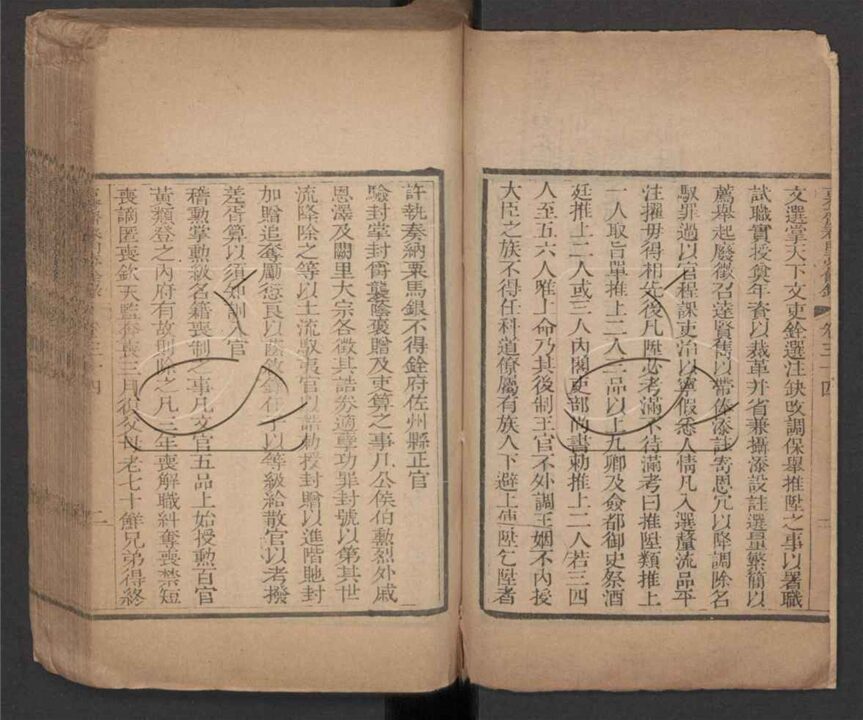 卷三十四
文選掌天下文吏銓選注缺改調保舉推陞之事以署職
試職實授食年資以裁革并省兼攝添設註選量繁簡以
薦舉起廢徵召達賢雋以帶俸添註寄恩冗以降調除名
馭罪過以官程課吏治以寧假悉人情凡入選釐流品平
注擢毋得相先後凡陞必考滿不待滿考曰推陞類推上
一人取旨單推上二人三品以上九卿及僉都御史祭酒
廷推上二人或三人內閣吏部尚書勑推上二人若三四
人至五六人唯上命乃其後制王官不外調王姻不內授
大臣之族不得任科道僚屬有族人下避上陞乞陞者
許執奏納粟馬銀不得銓府佐州縣正官
驗封掌封爵襲蔭褒贈及吏算之事凡公侯伯勳烈外戚
恩澤及闕里大宗各徵其誥券適孽功罪封號以第其世
流降除之等以土流馭夷官以誥勑授封贈以進階貤封
加贈追奪勵愆良以蔭敘錄任子以等級給散官以考撥
差胥算以須知訓入官
稽勳掌勳級名籍喪制之事凡文官五品上始授勳百官
黃類登之內府有故則除之凡三年喪解職糾奪喪禁短
喪謫匿喪欽天監奔喪三月復父母老七十鮮兄弟得終
三十四 二